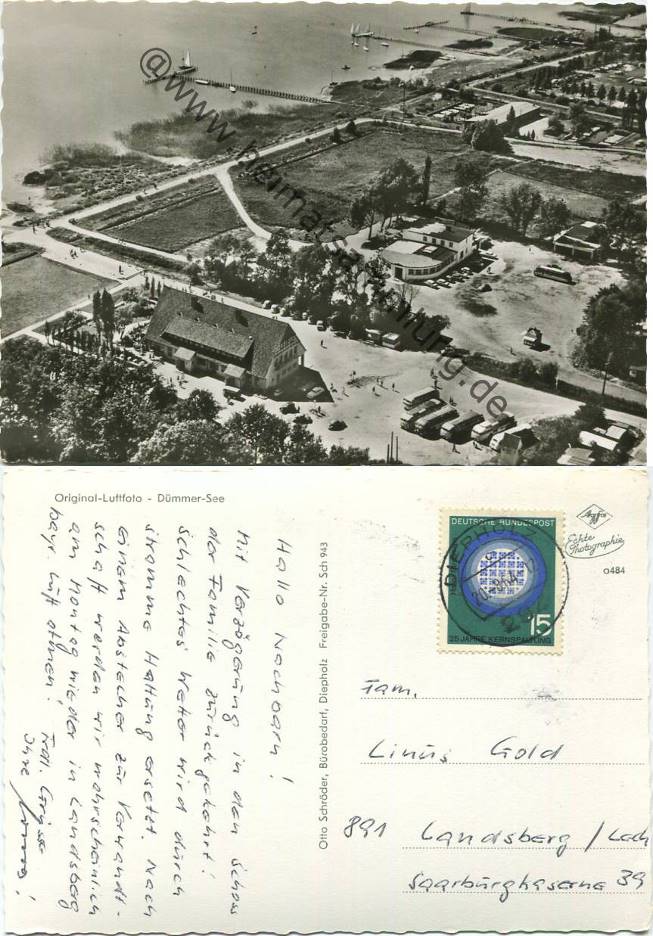 @www.heimatsammlung.de
Original-Luftfoto - Dümmer-See
Hallo Nachbarn!
Mit Verzögerung in den Schoss
der Familie zurückgekehrt!
Schlechtes Wetter wird durch
stramme Haltung ersetzt. Nach
einem Abstecher zur Verwandt-
schaft werden wir wahrscheinlich
am Montag wieder in Landsberg
bayr. Luft atmen!
Frdl. Grüsse
Ihre
Otto Schröder, Bürobedarf, Diepholz Freigabe-Nr. Sch 943
DEUTSCHE BUNDESPOST
15
25 JAHRE KERNSPALTUNG
DIEPHOLZ
Agfa
Echte
Photographie
o484
Fam.
Linus Gold
891 Landsberg/Lech
Saarburgkaserne 39